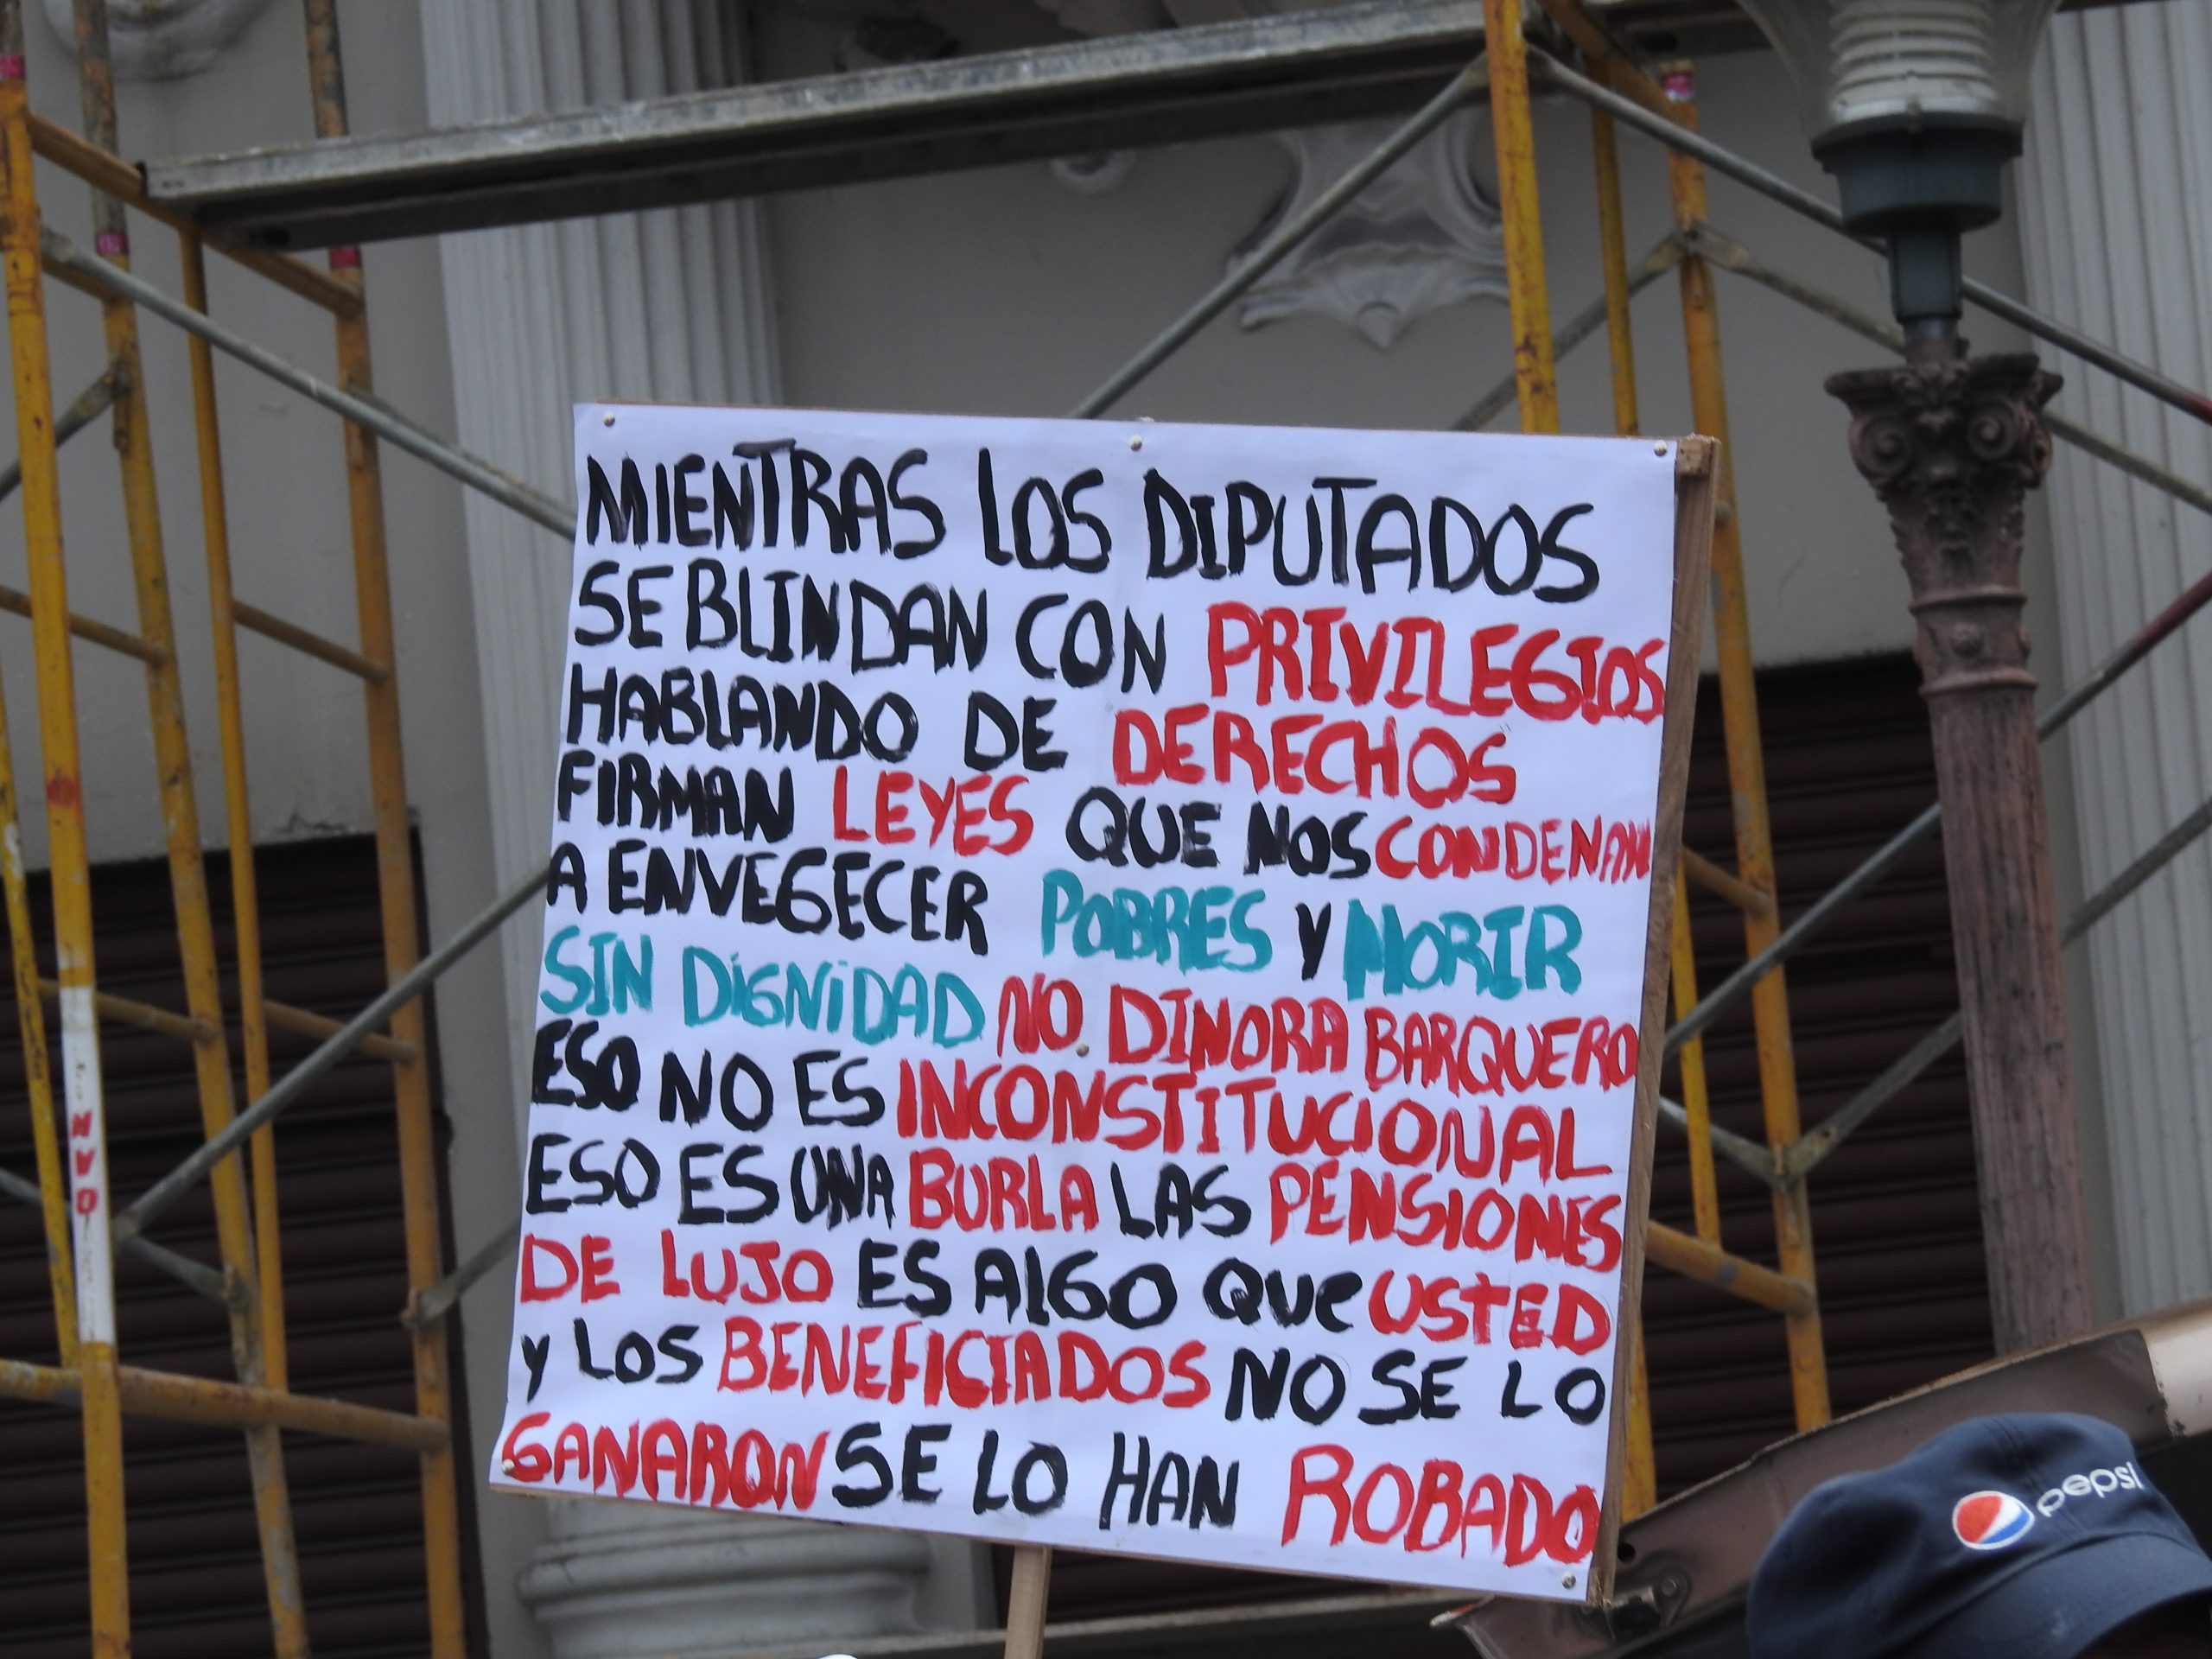 MIENTRAS LOS DIPUTADOS
SE BLINDAN CON PRIVILEGIOS
HABLANDO DE DERECHOS
FIRMAN LEYES QUE NOS CONDENAN
A ENVEGECER POBRES Y MORIR
SIN DIGNIDAD NO DINORA BARQUERO
ESO NO ES INCONSTITUCIONAL
ESO ES UNA BURLA LAS PENSIONES
DE LUJO ES ALGO QUE USTED
Y LOS BENEFICIADOS NO SE LO
GANARON SE LO HAN ROBADO
pepsi